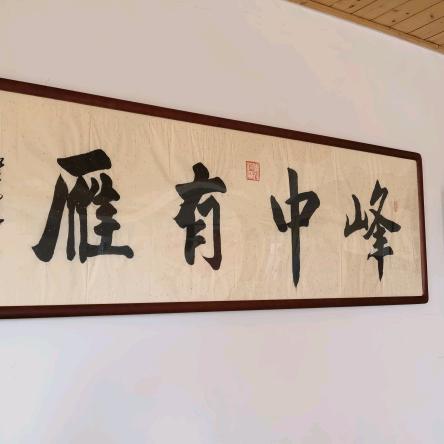 峰中有雁